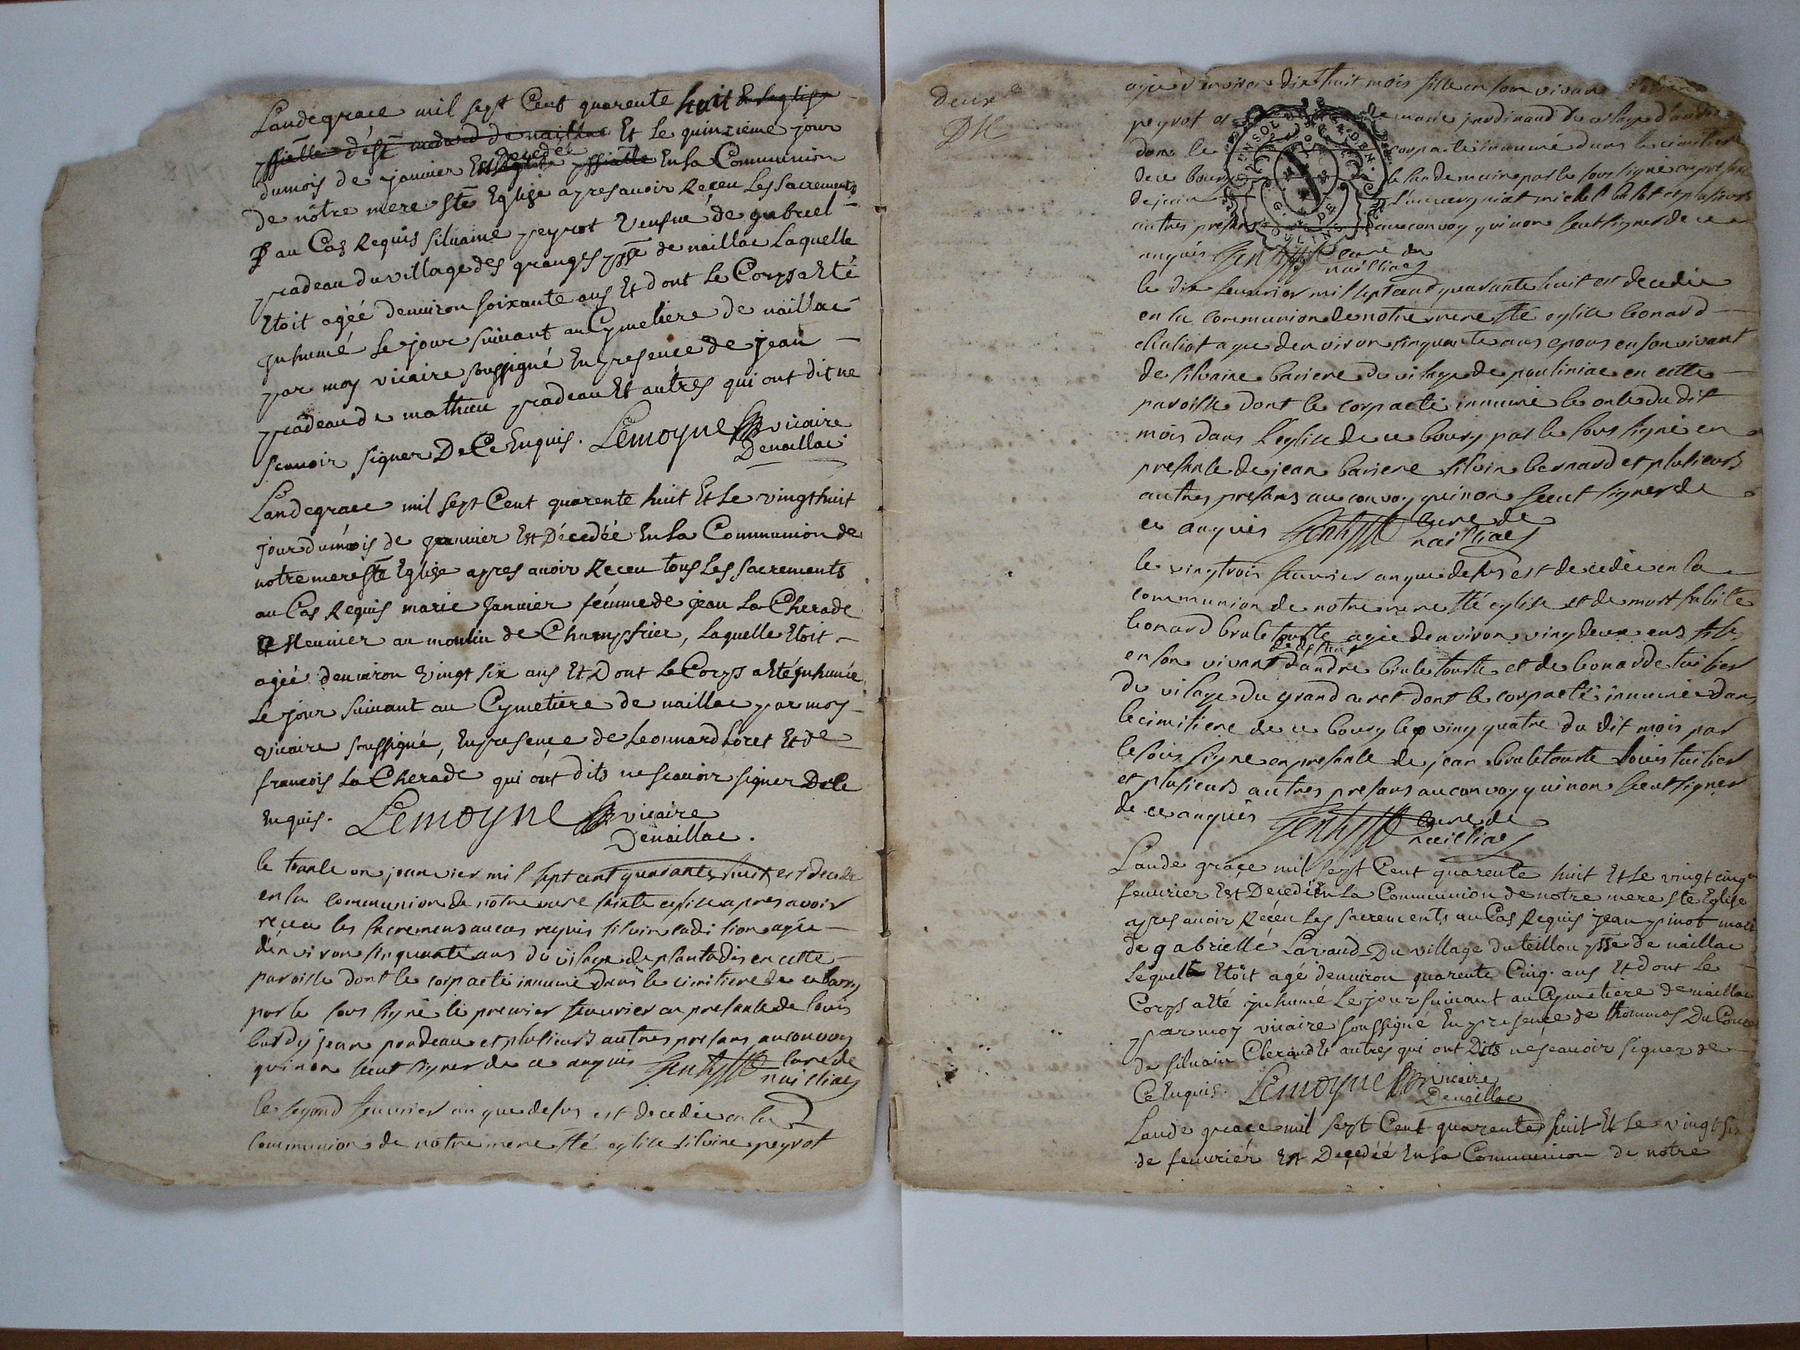 Landegrace mil sept Cent quarente huit En leglise
psielle d'e st medard de naillac Et le quinzieme jour
dumois de janvier Est Decedée En la Communion
de nôtre mere Ste Eglise apres avoir Receu Les Sacrements
au Cas Requis Silvaine peyrot Veufve de gabriel
pradeau du village des granges psse de naillac Laquelle
Etoit agéé denviron soixante ans Et dont Le Corps a Eté
jnhumé Le jour suivant au Cymetiere de naillac
par moy vicaire soussigné En presence de jean
pradeau de mathieu pradeau Et autres qui ont dit ne
scavoir signer De Ce Enquis. Lemoyne vicaire
Denaillac
Landegrace mil sept Cent quarente huit Et Le vingt huit
jour dumois de janvier Est Décedéé En La Communion de
notre mere Ste Eglise apres avoir Receu tous Les sacrements
au Cas Requis marie janvier femme de jean La Cherade
Meunier au moulin de Champfrier, Laquelle Etoit
agéé denviron vingt six ans Et Dont Le Corps a Eté jnhumée
Le jour suivant au Cymetiere de naillac par moy
vicaire soussigné, En presence de Leonnard Loret Et de
francois La Cherade qui ont dits ne scavoir signer De Ce
Enquis. Lemoyne vicaire
Denaillac.
le trante un jeanvier mil sept cent quarante huit est decede
en la communion de notre mere sainte eglise apres avoir
receu les sacremens au cas requis silvin agée
denviron sinquante ans du vilage de plantadis en cette
paroisse dont le corp a cté innumé dans le cimitiere de ce bourg
par le sous signé le premier feuvrier en presance de louis
jean pradeau et plusieurs autres presans au convoy
qui non sceut signer de ce anquis curé de
nailliac
le segond feuvrier an que desus est decedée en la
communion de notre mere sté eglise silvine peyrot
deux
agée d'environ dix huit mois fille en son vivant
peyrot et de marie jardinaud du vilage d'
dont le corp a cté innumé dans le cimitiere
de ce bourg le landemain par le sous signé en presance
de jean michel et plusieurs
autres presans au convoy qui non sceut signer de ce
anquis curé de
nailliac
le dix feuvrier mil sept cend quarante huit est decedé
en la communion de notre mere sté eglise leonard
chaliot agé denviron sinquante ans epous en son vivant
de silvaine bariere du vilage de pouliniac en cette
paroisse dont le corp a cté innumé le onze du dit
mois dans l'eglise de ce bourg par le sous signé en
presance de jean bariere silvin bernard et plusieurs
autres presans au convoy qui non sceut signer de
ce anquis curé de
nailliac
le vingt trois feuvrier an que desus est decedée en la
communion de notre mere sté eglise et de mort subite
leonard bruletourte agée denviron vingt deux ans
en son vivant d'andré bruletourte et de leonarde tuilier
du vilage du grand dont le corp a cté innumée dans
le cimitiere de ce bourg le vingt quatre du dit mois par
le sous signé en presance de jean bruletourte louis tuilier
et plusieurs autres presans au convoy qui non sceut signer
de ce anquis curé de
nailliac
Lande grace mil sept Cent quarente huit Et Le vingt cinq
feuvrier Est Decedé En La Communion de notre mere Ste Eglise
apres avoir Receu Les sacrements au Cas Requis jean pinot mari
de gabriellé Lavaud Du village du teillou psse de naillac
Lequel Etoit agé denviron quarente Cinq ans Et dont Le
Corps a Eté jnhumé Le jour suivant au Cymetiere de naillac
par moy vicaire soussigné En presence de thommas Du
de silvain Cleraud Et autres qui ont Dits ne scavoir signer de
Ce Enquis. Lemoyne vicaire
Denaillac
Lande grace mil sept Cent quarente huit Et Le vingt six
de feuvrier Est Decedéé En La Communion de notre